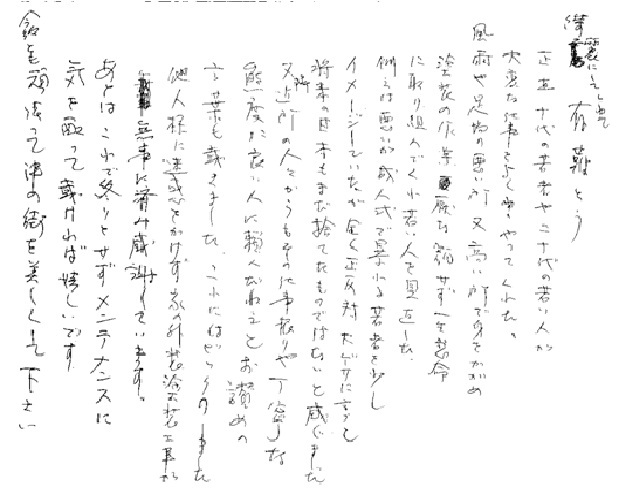 綺麗にしてくれて有難とう
正直十代の若者や二十代の若い人が
大変な仕事を良くやってくれた。
風雨や足場の悪い所又高い所で身をかがめ
塗装の作業 厭な顔せず一生懸命
に取り組んでくれ若い人を見直した
例えば悪いが成人式で暴れる若者を少し
イメージしていたが全く正反対 大ゲサに言うと
将来の日本もまだ捨てたものではないと感じました
又近所の人々からもその仕事振りや丁寧な
態度に良い人に頼んだねえとお讃めの
言葉も戴きました。これにはびっくりしました
他人様に迷惑をかけず家の外装塗装工事が
無事に済み感謝しています。
あとはこれで終りとせずメンテナンスに
気を配って戴ければ嬉しいです
今后も頑張って津の街を美しくして下さい